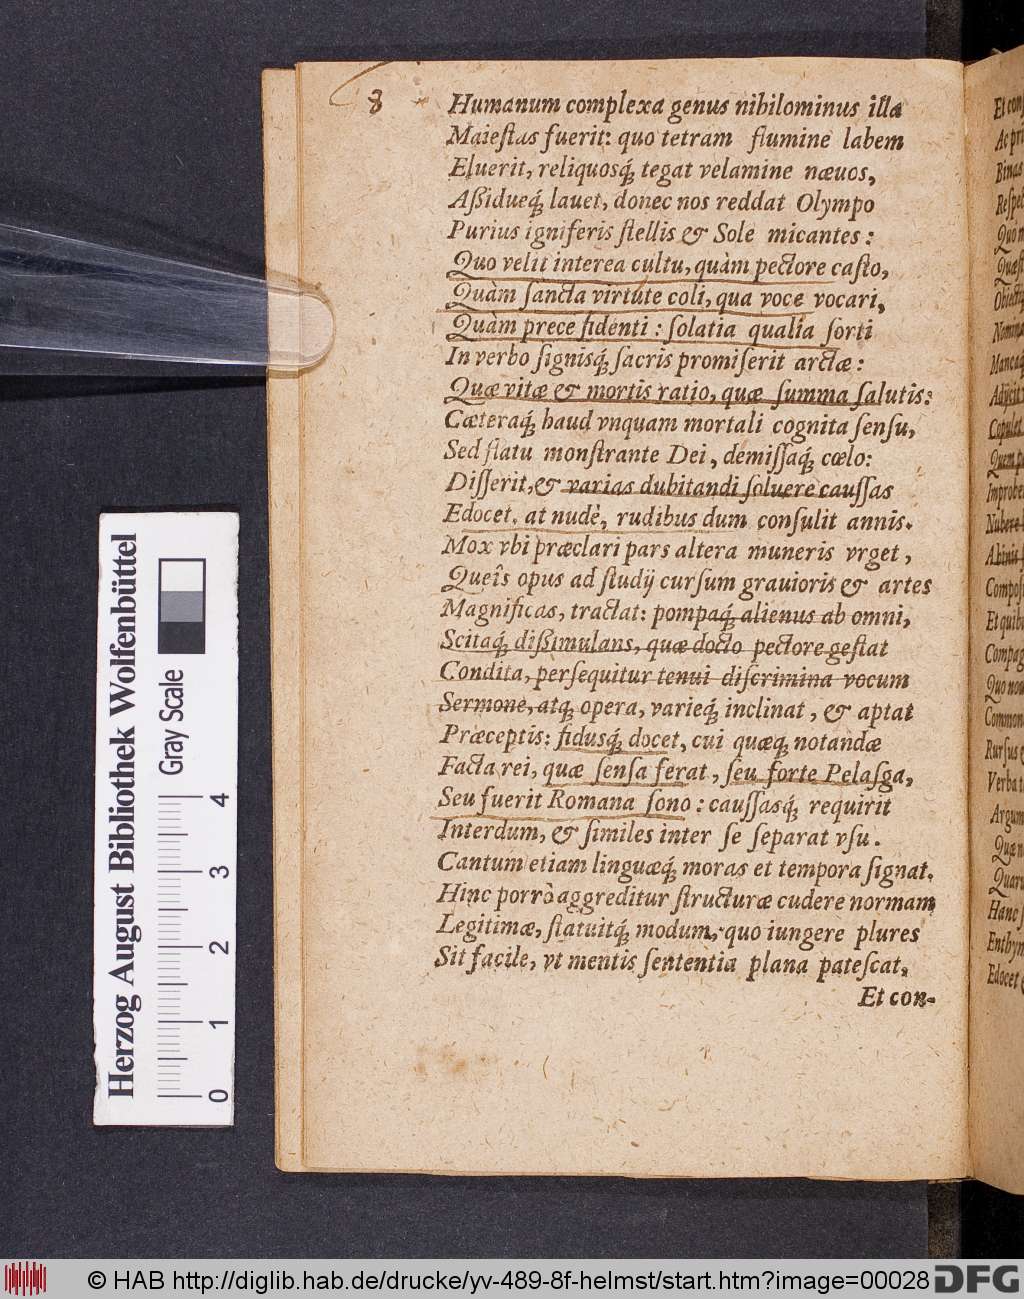 8
Humanum complexa genus nihilominus illa
Maieſtas fuerit: quo tetram flumine labem
Eluerit, reliquosq́; tegat velamine nævos,
Aßidueq́; lauet, donec nos reddat Olympo
Purius igniferis ſtellis & Sole micantes:
Quo velit interea cultu, quàm pectore caſto,
Quàm ſancta virtute coli, qua voce vocari,
Quàm prece fidenti: ſolatia qualia ſorti
In verbo ſignisq́; ſacris promiſerit arctæ:
Quæ vitæ & mortis ratio, quæ ſumma ſalutis:
Cæteraq́; haud vnquam mortali cognita ſenſu,
Sed flatu monſtrante Dei, demiſſaq́; cœlo:
Diſſerit, & varias dubitandi ſoluere cauſſas
Edocet. at nudè, rudibus dum conſulit annis.
Mox vbi præclari pars altera muneris vrget,
Queîs opus ad ſtudij curſum grauioris & artes
Magnificas, tractat: pompaq́; alienus ab omni,
Scitaq́; dißimulans, quæ docto pectore geſtat
Condita, perſequitur tenui diſcrimina vocum
Sermone, atq; opera, varieq́; inclinat, & aptat
Præceptis: fidusq́; docet, cui quæq; notandæ
Facta rei, quæ ſenſa ferat, ſeu forte Pelaſga,
Seu fuerit Romana ſono: cauſſasq́; requirit
Interdum, & ſimiles inter ſe ſeparat vſu.
Cantum etiam linguæq́; moras et tempora ſignat.
Hinc porrò aggreditur ſtructuræ cudere normam
Legitimæ, ſtatuitq́; modum, quo iungere plures
Sit facile, vt mentis ſententia plana pateſcat.
Et con-
Herzog August Bibliothek Wolfenbüttel
Gray Scale
0 1 2 3 4
© HAB http://diglib.hab.de/drucke/yv-489-8f-helmst/start.htm?image=00028
DFG